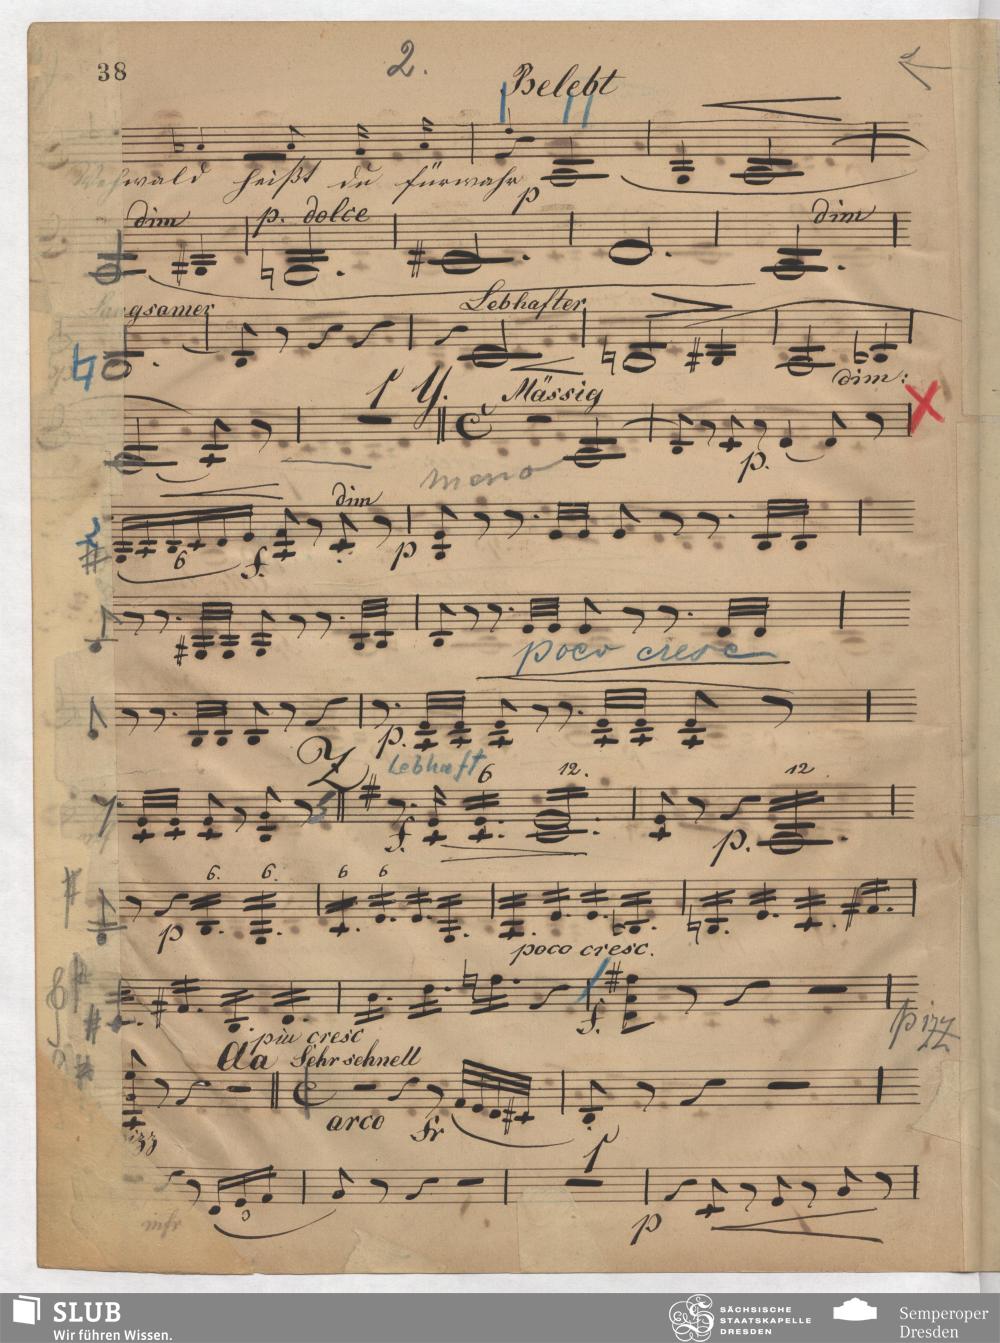 38 2.
Belebt
Wehwald heißt du fürwahr p
dim p. dolce dim
Langsamer Lebhafter
dim:
1 Y. Mässig
meno p.
dim
6 f. p
poco cresc
p.
Z Lebhaft 6 12. 12
f. p.
6. 6. 6 6
p poco cresc.
f. pizz
più cresc
Aa Sehr schnell
arco
pizz 1
3 p
SLUB
Wir führen Wissen.
SÄCHSISCHE
STAATSKAPELLE
DRESDEN
Semperoper
Dresden